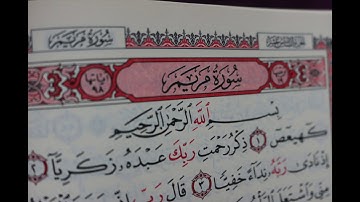 سُورَةُ مَرْيَمَ
سُورَةُ مَرْيَمَ
آيَاتُهَا ٩٨
بِسْمِ اللَّهِ الرَّحْمَٰنِ الرَّحِيمِ
كٓهيعٓصٓ ١ ذِكْرُ رَحْمَتِ رَبِّكَ عَبْدَهُۥ زَكَرِيَّآ ٢
إِذْ نَادَىٰ رَبَّهُۥ نِدَآءً خَفِيًّا ٣ قَالَ رَبِّ